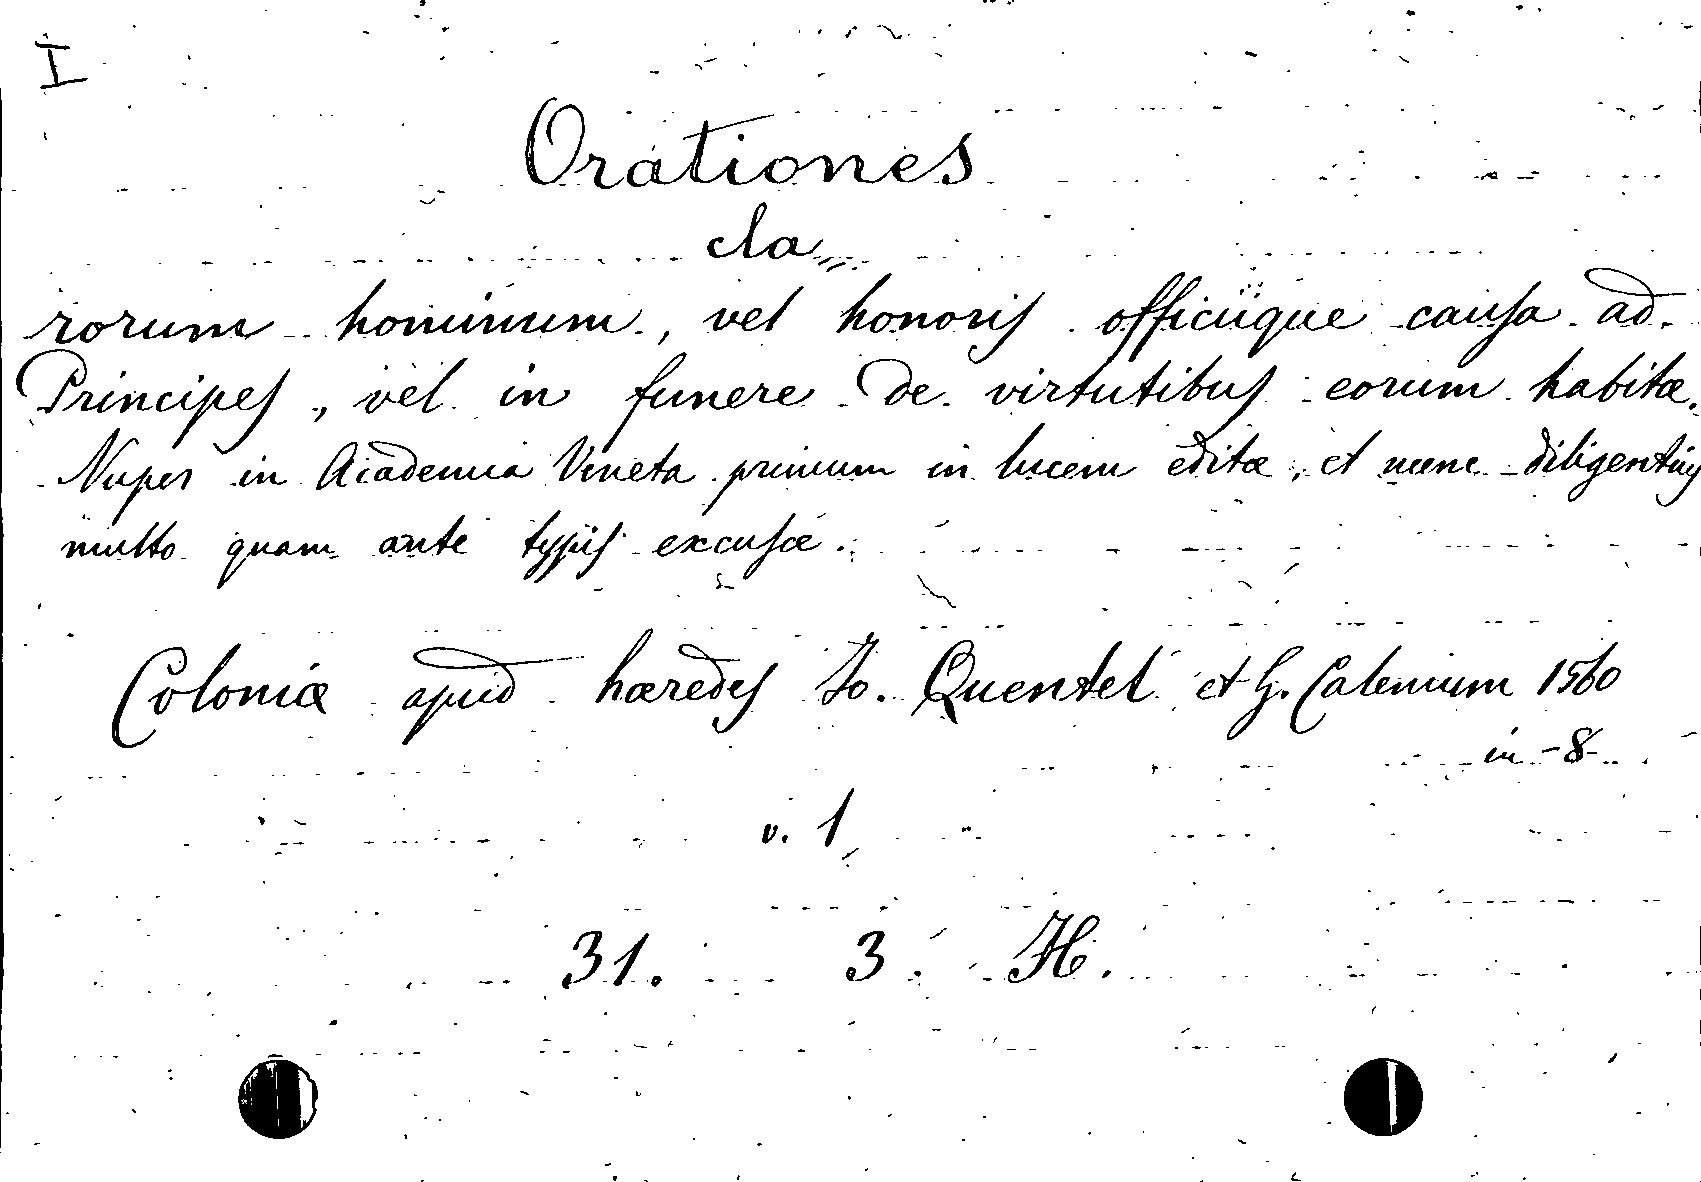 I
Orationes
cla,,,
rorum hominum, vel honoris officiique causa ad
Principes, vel in funere de virtutibus eorum habitæ.
Nuper in Academia Veneta primum in lucem editæ, et nunc diligentius
multo quam ante typis excusæ.
Coloniæ apud hæredes Jo. Quentel et G. Calenium 1560
in-8
v. 1
31. 3. H.